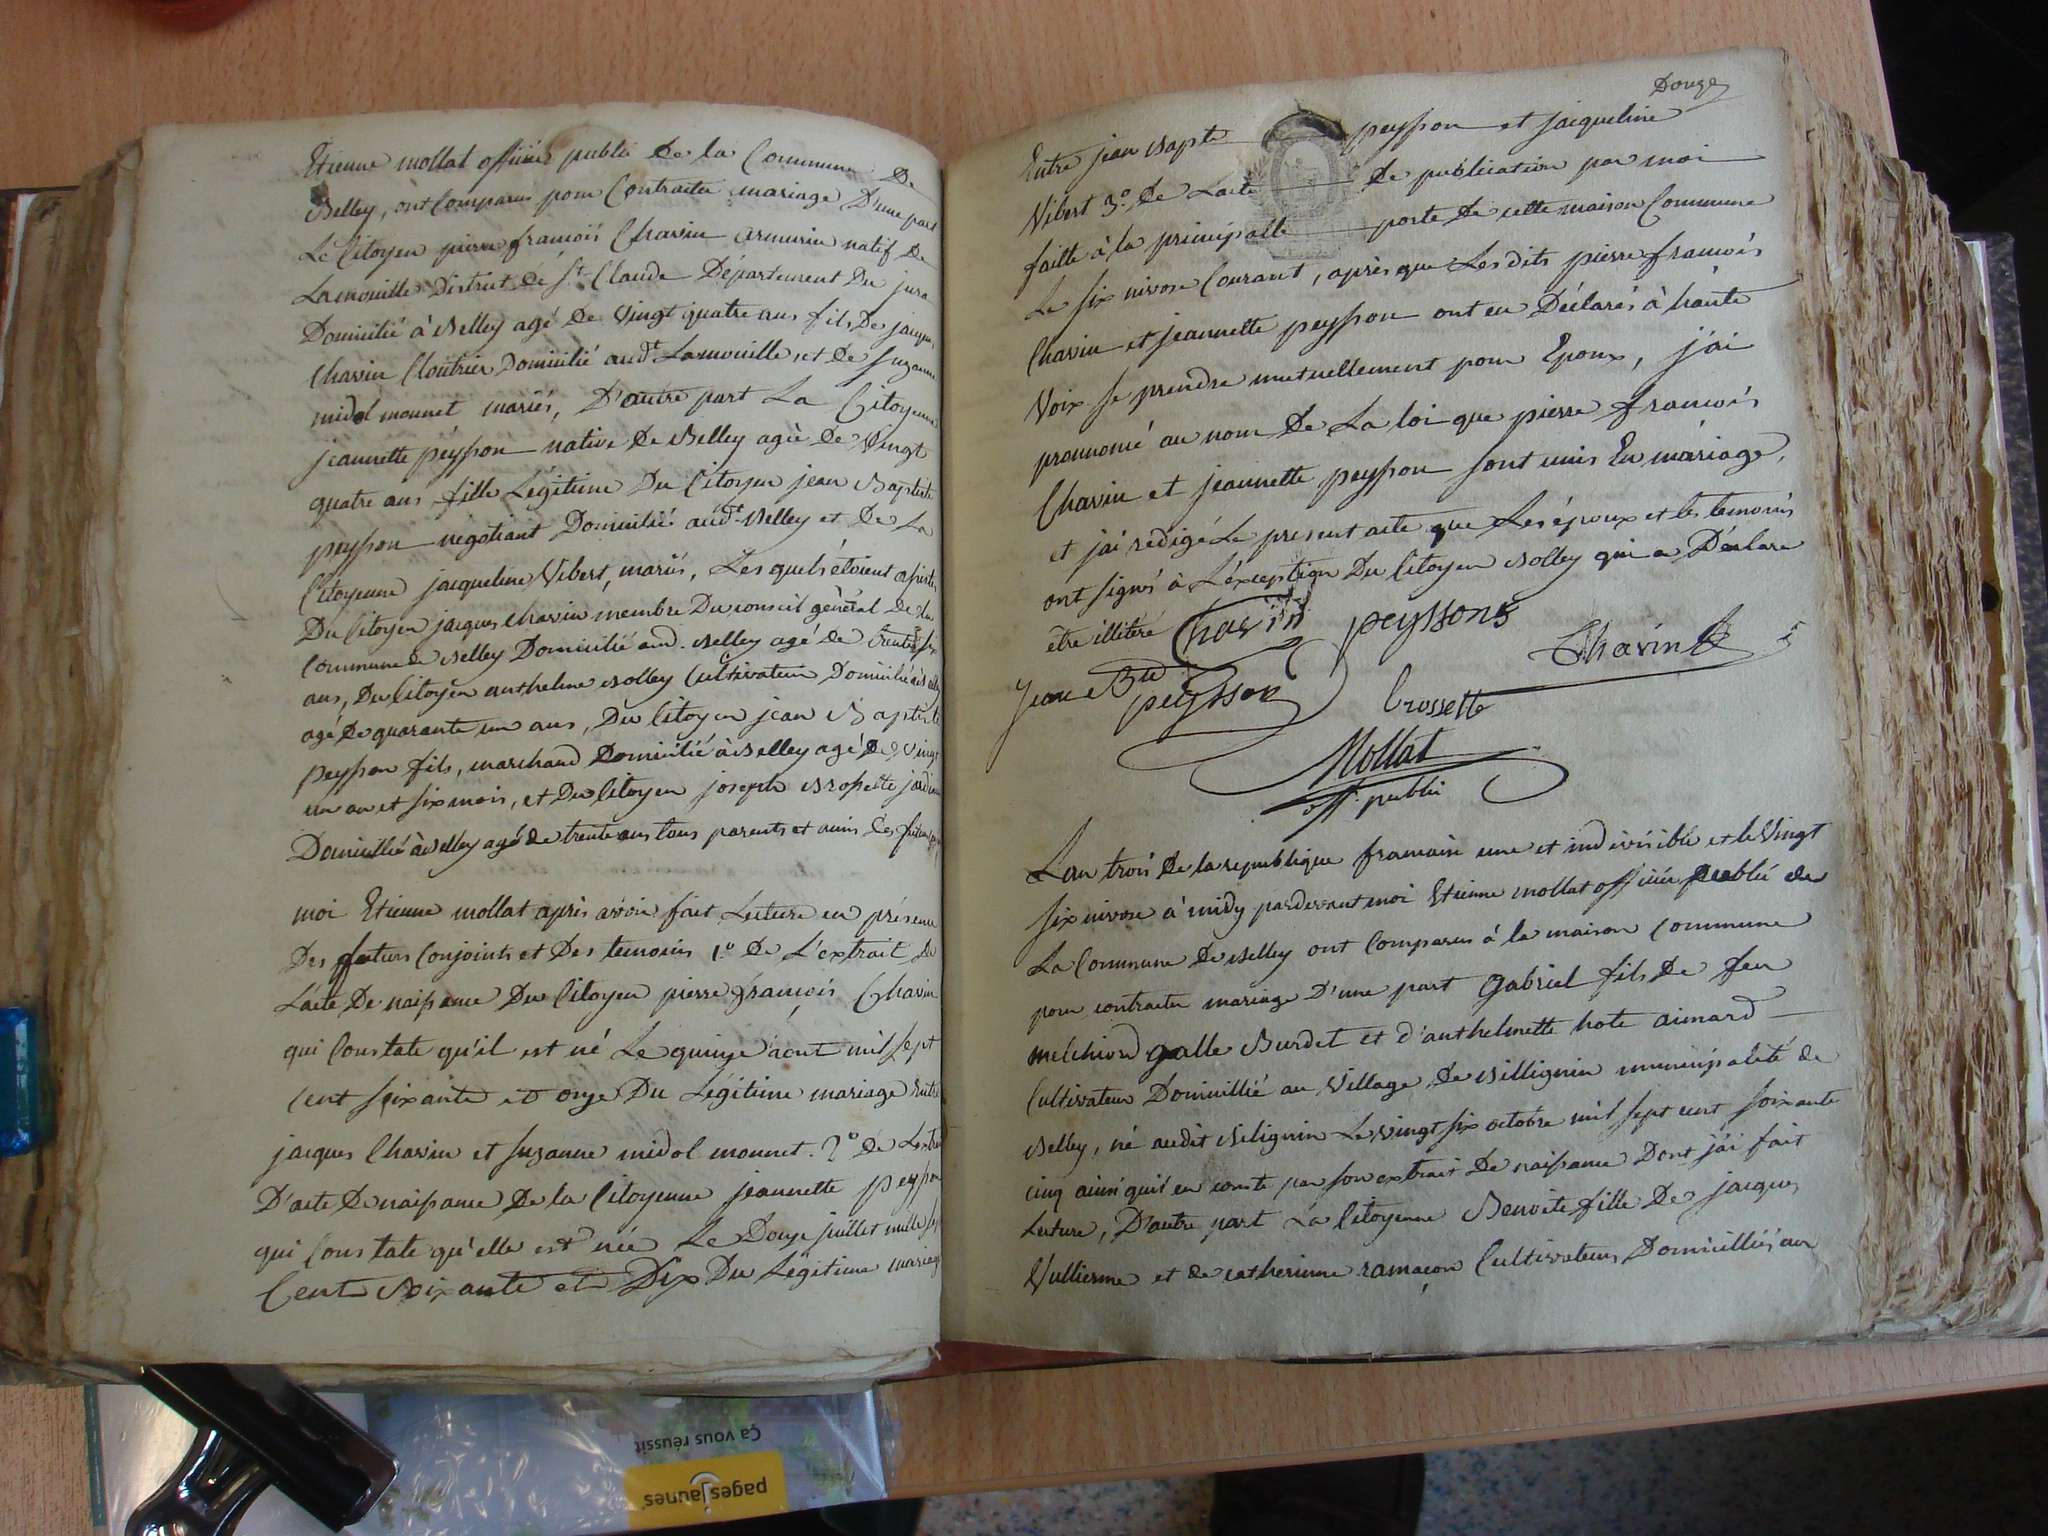 Etienne mollat officier public De la Commune De
Belley, ont Comparus pour Contracter mariage D'une part
Le Citoyen pierre francois Chavin armurier natif De
Lamouille District de St Claude Département Du jura
Domicilié à Belley agé De Vingt quatre ans fils De jacques
Chavin Cloutrier Domicilié audt Lamouille, et De Suzanne
midol monnet mariés, D'autre part La Citoyenne
jeannette peysson native De Belley agée De Vingt
quatre ans fille Légitime Du Citoyen jean Baptiste
peysson négotiant Domicilié audt Belley et De La
Citoyenne jacqueline Vibert, mariés, Lesquels étoient assistés
Du Citoyen jacques Chavin membre Du conseil général De La
Commune De Belley Domicilié aud. Belley agé de trente six
ans, Du Citoyen anthelme Bolley Cultivateur Domicilié à Belley
agé De quarante un ans, Du Citoyen jean Baptiste
peysson fils, marchand Domicilié à Belley agé De Vingt
un an et six mois, et Du Citoyen joseph Brossette
Domicillié à Belley agé de trente ans tous parents et amis Des futurs
moi Etienne mollat après avoir fait Lecture en présence
Des futurs Conjoints et Des temoins 1.° De L'extrait De
L'acte De naissance Du Citoyen pierre françois Chavin
qui Constate qu'il est né Le quinze aout mil sept
cent soixante et onze Du Légitime mariage Entre
jacques Chavin et suzanne midol monnet. 2° De L'extrait
D'acte De naissance De la Citoyenne jeannette peysson
qui Constate qu'elle est née Le Douze juillet mille sept
Cent Soixante et Dix Du Légitime mariage
Douze
Entre jean Bapte peysson et jacqueline
Vibert 3.° De Lacte De publication par moi
faitte à la principalle porte De cette maison Commune
Le six nivose Courant, après que Lesdits pierre francois
Chavin et jeannette peysson ont eu Déclarés à haute
Voix se prendre mutuellement pour Epoux, j'ai
prononcé au nom De La loi que pierre francois
Chavin et jeannette peysson sont unis En mariage,
et jai redigé Le present acte que Les époux et les temoins
ont signés à L'exception Du Citoyen Bolley qui a Déclare
etre illitéré Chavin peyssone
Chavin
jean Bte
peysson
Crossette
Mollat
off. public
Lan trois De la republique francaise une et indivisible et le Vingt
six nivose à midy pardevant moi Etienne mollat officier public de
La Commune De Belley ont Comparus à la maison Commune
pour contracter mariage D'une part Gabriel fils De feu
melchiord galle Burdet et d'anthelmette hote aimard
Cultivateur Domicillié au Village De Billignin municipalité de
Belley, né audit Bilignin Le vingt six octobre mil sept cent soixante
cinq ainsi qu'il en conste par son extrait De naissance Dont j'ai fait
Lecture, D'autre part La Citoyenne Benoite fille De jacques
Vullierme et de catherinne ramaçon Cultivateurs Domicilliés au
Ça vous réussit
pagesjaunes